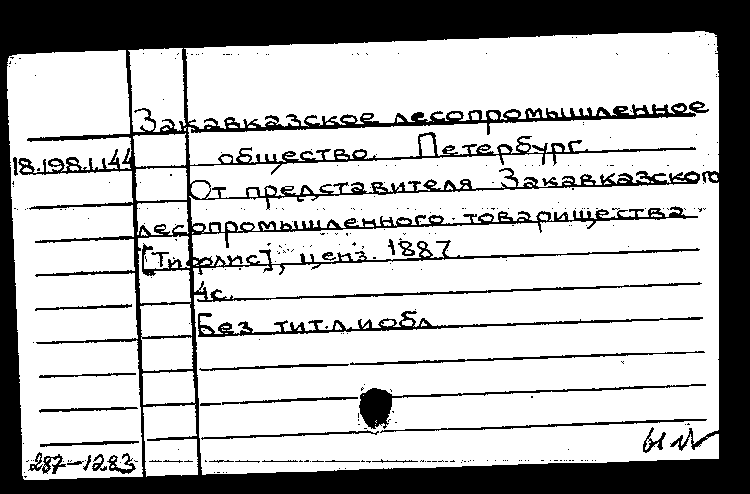 Закавказское лесопромышленное
18.198.1.144 общество. Петербург.
От представителя Закавказского
лесопромышленного товарищества
[Тифлис], ценз. 1887.
4с.
Без тит.л. и обл.
287-1283